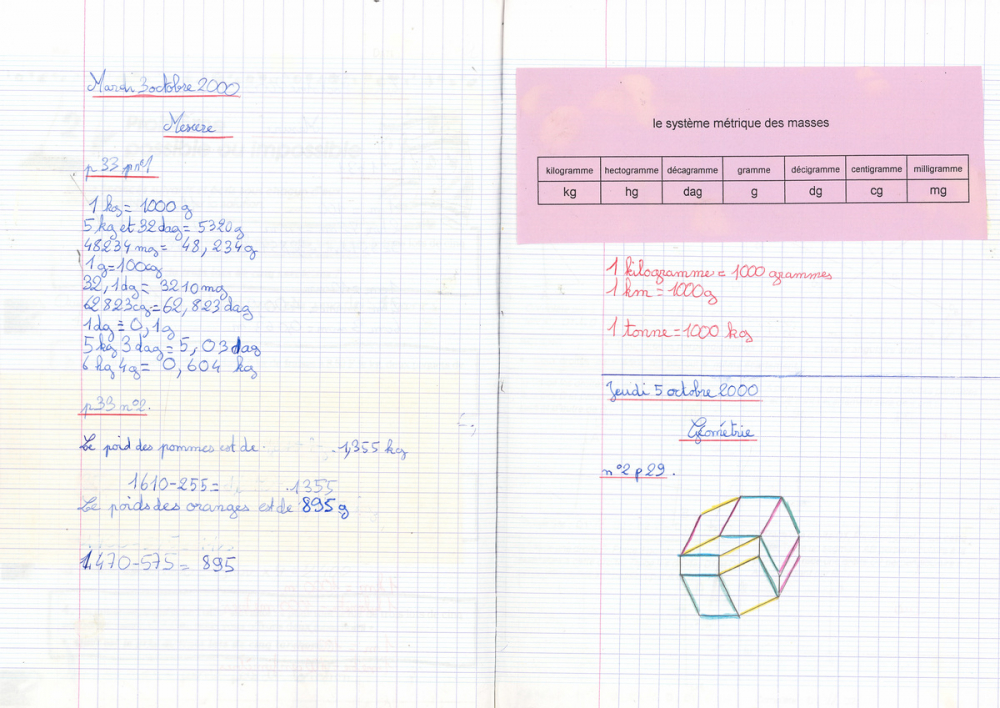 Mardi 3 octobre 2000
Mesure
p 33 n°1
1 kg = 1000 g
5 kg et 32 dag = 5320 g
48234 mg = 48,234 g
1 g = 100 cg
32,1 dg = 3210 mg
62 823 cg = 62,823 dag
1 dg = 0,1 g
5 kg 3 dag = 5,03 dag
6 hg 4 g = 0,604 kg
p 33 n°2.
Le poid des pommes est de 1,355 kg
1610-255 = 1355
Le poids des oranges est de 895 g
1470-575 = 895
le système métrique des masses
kilogramme hectogramme décagramme gramme décigramme centigramme milligramme
kg hg dag g dg cg mg
1 kilogramme = 1000 grammes
1 km = 1000 g
1 tonne = 1000 kg
Jeudi 5 octobre 2000
Géométrie
n°2 p 29.